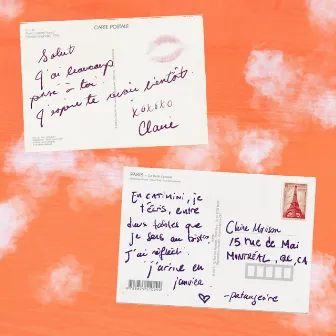 CARTE POSTALE
Salut
J'ai beaucoup
pensé à toi.
J'espère te revoir bientôt.
xoxoxo
Claire
PARIS
En catimini, je
t'écris, entre
deux toiles que
je sors au bistro.
J'ai réfléchi.
j'arrive en
janvier.
Claire Maison
15 rue de Mai
MONTRÉAL, QC, CA